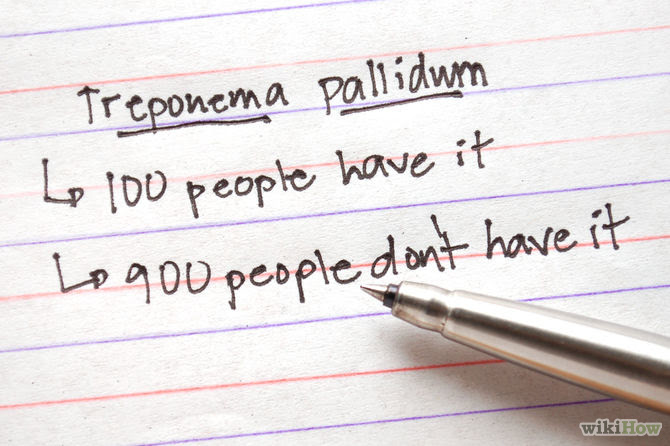 Treponema pallidum
↳ 100 people have it
↳ 900 people don't have it
wikiHow